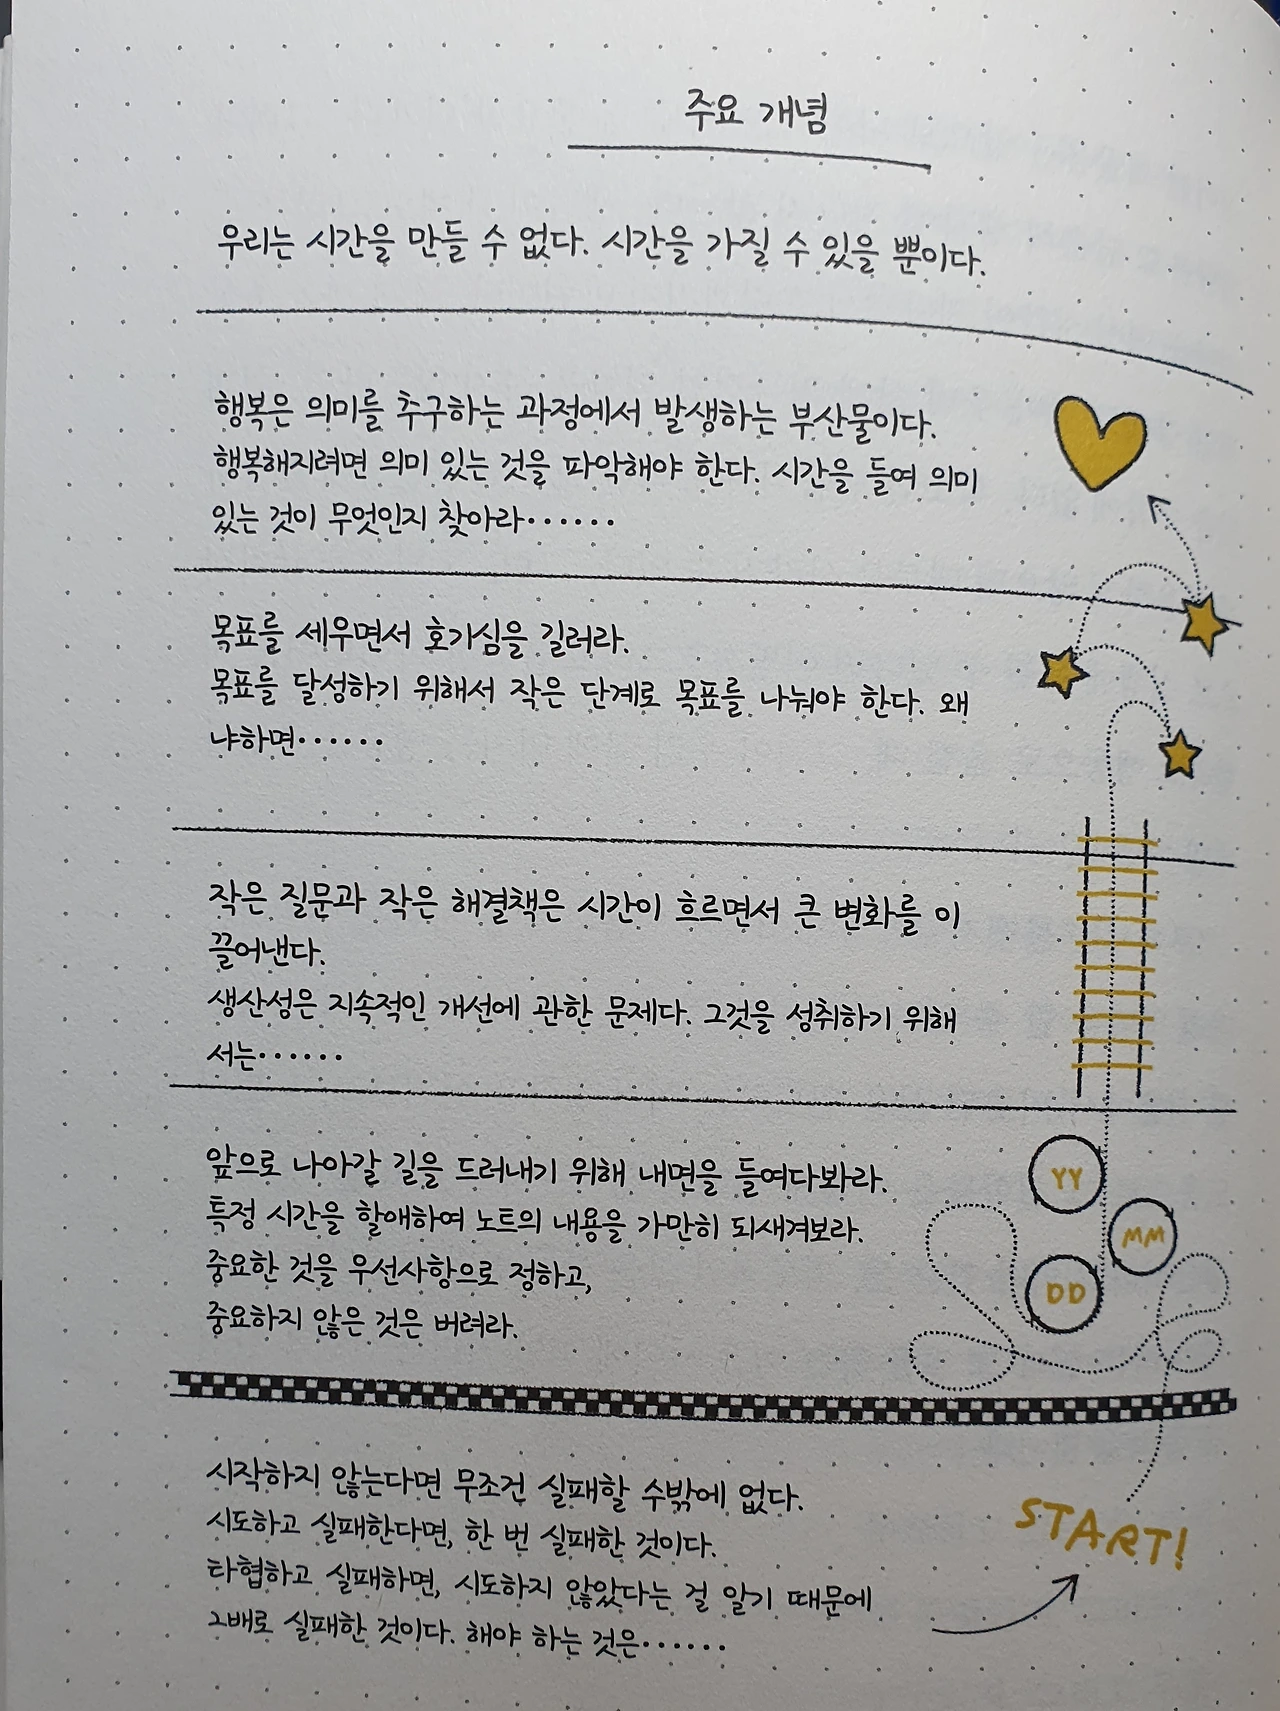 주요 개념
우리는 시간을 만들 수 없다. 시간을 가질 수 있을 뿐이다.
행복은 의미를 추구하는 과정에서 발생하는 부산물이다.
행복해지려면 의미 있는 것을 파악해야 한다. 시간을 들여 의미
있는 것이 무엇인지 찾아라······
목표를 세우면서 호기심을 길러라.
목표를 달성하기 위해서 작은 단계로 목표를 나눠야 한다. 왜
냐하면······
작은 질문과 작은 해결책은 시간이 흐르면서 큰 변화를 이
끌어낸다.
생산성은 지속적인 개선에 관한 문제다. 그것을 성취하기 위해
서는······
앞으로 나아갈 길을 드러내기 위해 내면을 들여다봐라.
특정 시간을 할애하여 노트의 내용을 가만히 되새겨보라.
중요한 것을 우선사항으로 정하고,
중요하지 않은 것은 버려라.
YY
MM
DD
시작하지 않는다면 무조건 실패할 수밖에 없다.
시도하고 실패한다면, 한 번 실패한 것이다.
타협하고 실패하면, 시도하지 않았다는 걸 알기 때문에
2배로 실패한 것이다. 해야 하는 것은······
START!